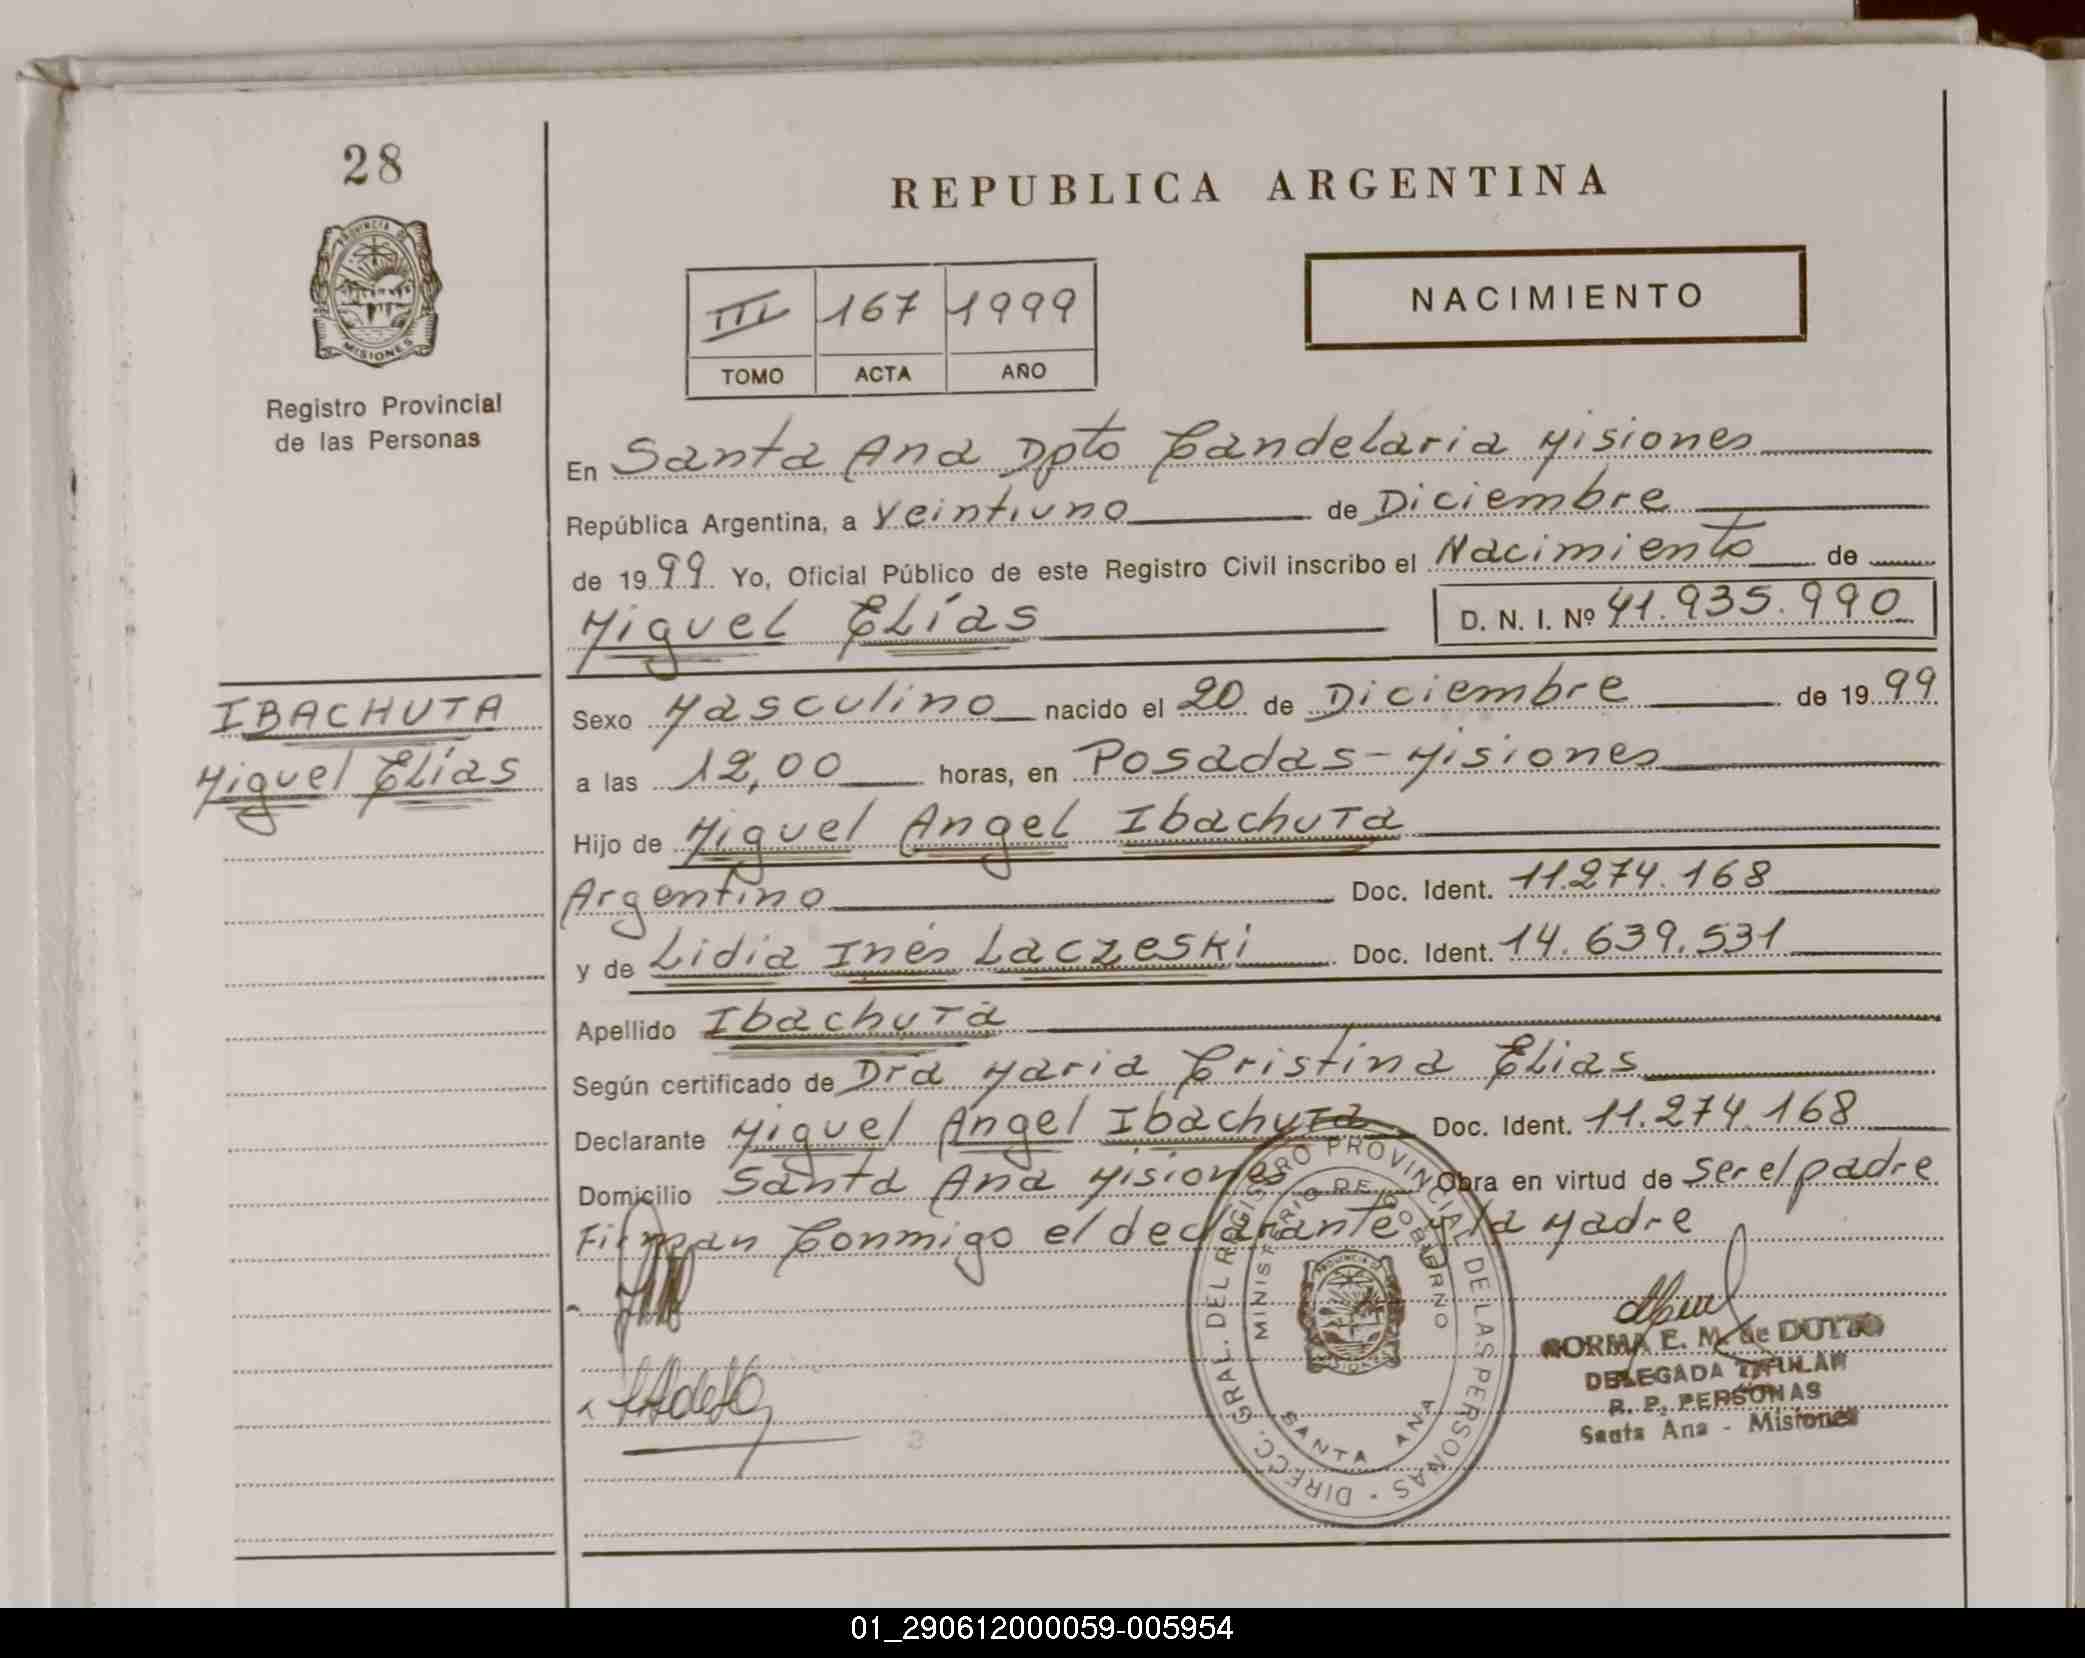 28
PROVINCIA DE
MISIONES
Registro Provincial
de las Personas
REPUBLICA ARGENTINA
III 167 1999
TOMO ACTA AÑO
NACIMIENTO
En Santa Ana Dpto Candelaria Misiones
República Argentina, a Veintiuno de Diciembre
de 1999 Yo, Oficial Público de este Registro Civil inscribo el Nacimiento de
Miguel Elías D. N. I. Nº 41.935.990
IBACHUTA
Miguel Elías
Sexo Masculino nacido el 20 de Diciembre de 1999
a las 12,00 horas, en Posadas-Misiones
Hijo de Miguel Angel Ibachuta
Argentino Doc. Ident. 11.274.168
y de Lidia Inés Laczeski Doc. Ident. 14.639.531
Apellido Ibachuta
Según certificado de Dra Maria Cristina Elias
Declarante Miguel Angel Ibachuta Doc. Ident. 11.274.168
Domicilio Santa Ana Misiones Obra en virtud de ser el padre
Firman Conmigo el declarante y la Madre
DIRECC. GRAL. DEL REGISTRO PROVINCIAL DE LAS PERSONAS
MINISTERIO DE GOBIERNO
SANTA ANA
NORMA E. M. de DUTTO
DELEGADA TITULAR
R. P. PERSONAS
Santa Ana - Misiones
01_290612000059-005954